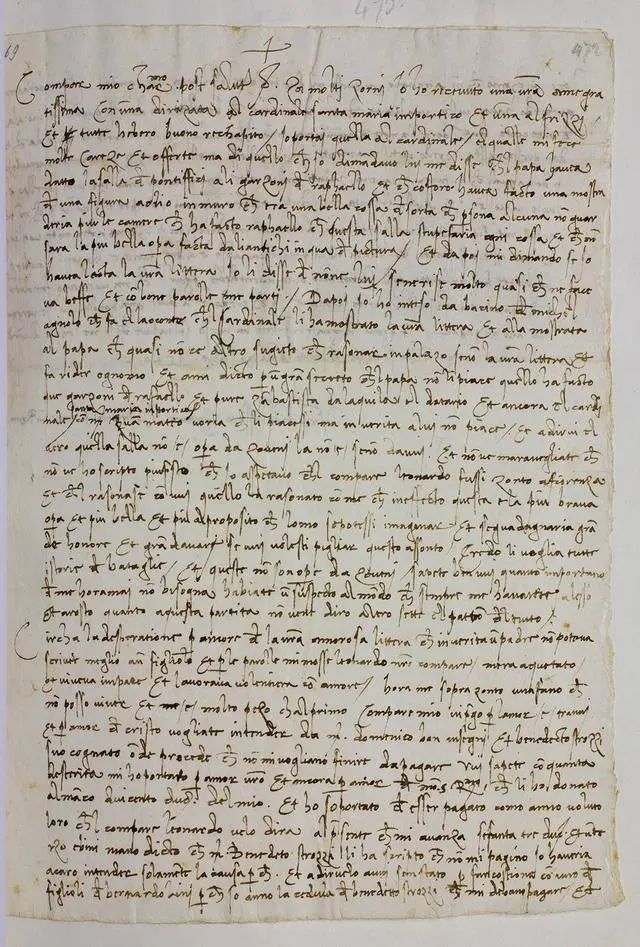 473.
69
472
Compare mio salut Za molti zorni Io ho receuto una vra ame gra
tissima con una al cardinale santa maria in portico Et una al frizzi
Et tutte hebero buono rechapito / Io portai quella al cardinale / el qualle mi fece
molte careze Et offerte ma di quello ch Io dimandavo lui me disse ch'l papa haveva
datto la salla d pontiffici a li garzoni d raphaello Et ch costoro haveva facto una mostra
d una figura a olio in muro ch era una bella cossa d sorta ch psona alcuna no guar
deria piu le camere ch ha facto raphaello ch questa salla stupefaria ogni cossa Et ch no
sara la piu bella opa facta da li antichi in qua d pictura / Et da poi mi dimando se Io
haveva lecta la vra littera Io li disse d none lui / se ne rise molto quasi ch ne face
va beffe Et co bone parolle me parti / Da poi Io ho inteso da bacino d michel
agnolo ch fa el laoconte ch'l cardinale li ha mostrato la vra littera Et alla mostrata
al papa ch quasi no ce altro sugieto ch rasonar in palazo seno la vra littera Et
fa rider ognomo Et ami dicto p gra secreto ch'l papa no li piace quello ha facto
que garzoni d raphaello Et pure baptista da laquila el datario Et ancora el cardi
santa maria in portico
nale matto voria ch li piacesi ma in verita a lui no piace / Et a dirvi el
vero quella salla no e / opa da zoveni la no e / seno da vui. Et no ve maravegliate ch
no ve ho scripto piu presto ch Io aspetavo ch'l compare leonardo fussi zonto a fiorenza
Et ch'l rasonase co vui quello la rasonato co me ch in effecto questa e la piu brava
opa et piu bella Et piu al proposito ch lomo se potessi imaginar Et se guadagnaria gra
de honore Et gra danari se vui volesti pigliar questo assonto / Credo li voglia tutte
istorie d bataglie / Et queste no son ope da zoveni / sapete ben vui quanto inportano
d me horamai no bisogna habiate suspecto al modo ch sempre me havarete a lesso
Et arosto quanto a questa partita no ve ne diro altro sette el patron d'l tuto /
Circha la desperatione p amore d la vra amorosa littera ch in verita un padre no poteva
scriver meglio a un figliolo Et p le parolle mi disse leonardo nro compare / mera aquetato /
Et viveva in pace Et lavorava volentiera co amore / hora me sopra zonto uno afano ch
no posso vivere Et me e / molto pezo ch'al primo Compare mio vi p lamor e
Et p amor d cristo vogliate intender da M. domenico bon insegni Et benedecto strozzi
suo cognato o de procede ch no mi vogliano finire da pagare Vui sapete co quanta
descrita mi ho portato p amor vro Et ancora p amor ch li ho donato
al maco ducento duc. del mio. Et ho soportato d esser pagato como anno voluto
loro ch'l compare leonardo velo dira al psente ch mi avanza setanta tre duc. et un te
rzo Como mano dicto ch M. Benedeto strozzi li ha scripto ch no mi pagino Io haveria
acaro intender solamete la causa p ch. Et a dirvelo a vui son stato p far costione co uno d
figlioli d bernardo bini p ch so anno la cedula d benedetto strozzi ch mi debano pagare / Et